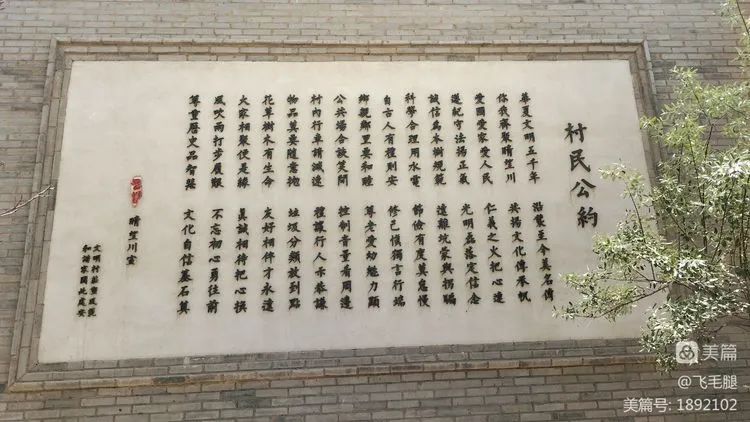 村民公約
華夏文明五千年 沿襲至今美名傳
你我齊聚晴望川 共揚文化傳承帆
愛國愛家愛人民 仁義之火把心連
遵紀守法揚正氣 光明磊落定信念
誠信為本樹規範 遠離坑蒙與拐騙
科學合理用水電 節儉有度莫怠慢
自古人有種則安 修己慎獨言行端
鄉親鄰里要和睦 尊老愛幼魅力顯
公共場合談笑間 控制音量看周邊
村内行車請減速 禮讓行人示恭謙
物品莫要隨意拋 垃圾分類放到點
花草樹木有生命 友好相伴才永遠
大家相聚便是緣 真誠相待把心換
風吹雨打步履艱 不忘初心勇往前
尊重歷史品智慧 文化自信基石奠
晴望川宣
文明村莊
和諧家園此處安
美篇
@飞毛腿
美篇号: 1892102